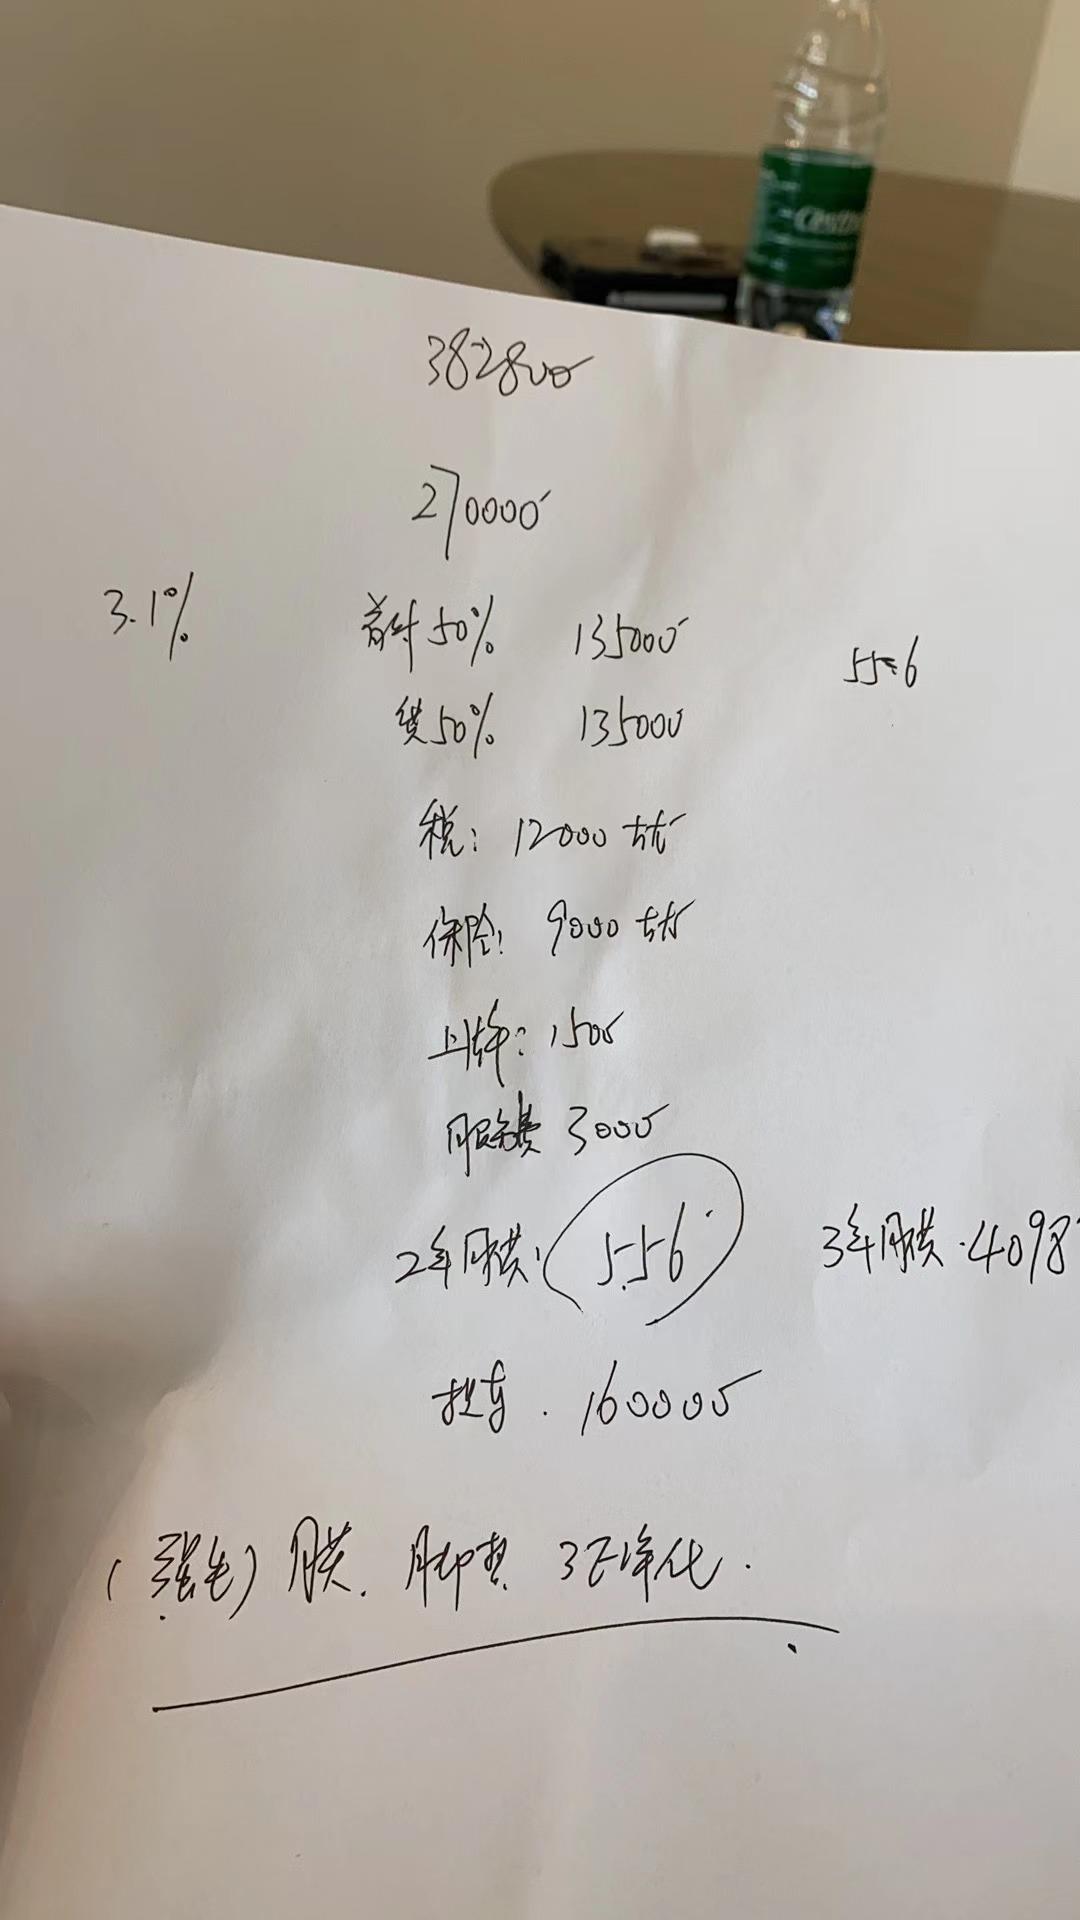 C'estbon
382800
270000
3.1%
首付50% 135000
5556
贷50% 135000
税: 12000 左右
保险: 9000 左右
上牌: 1500
服务费 3000
2年月供: 5556
3年月供. 4098
提车. 160000
(强生) 膜. 脚垫 3正净化.